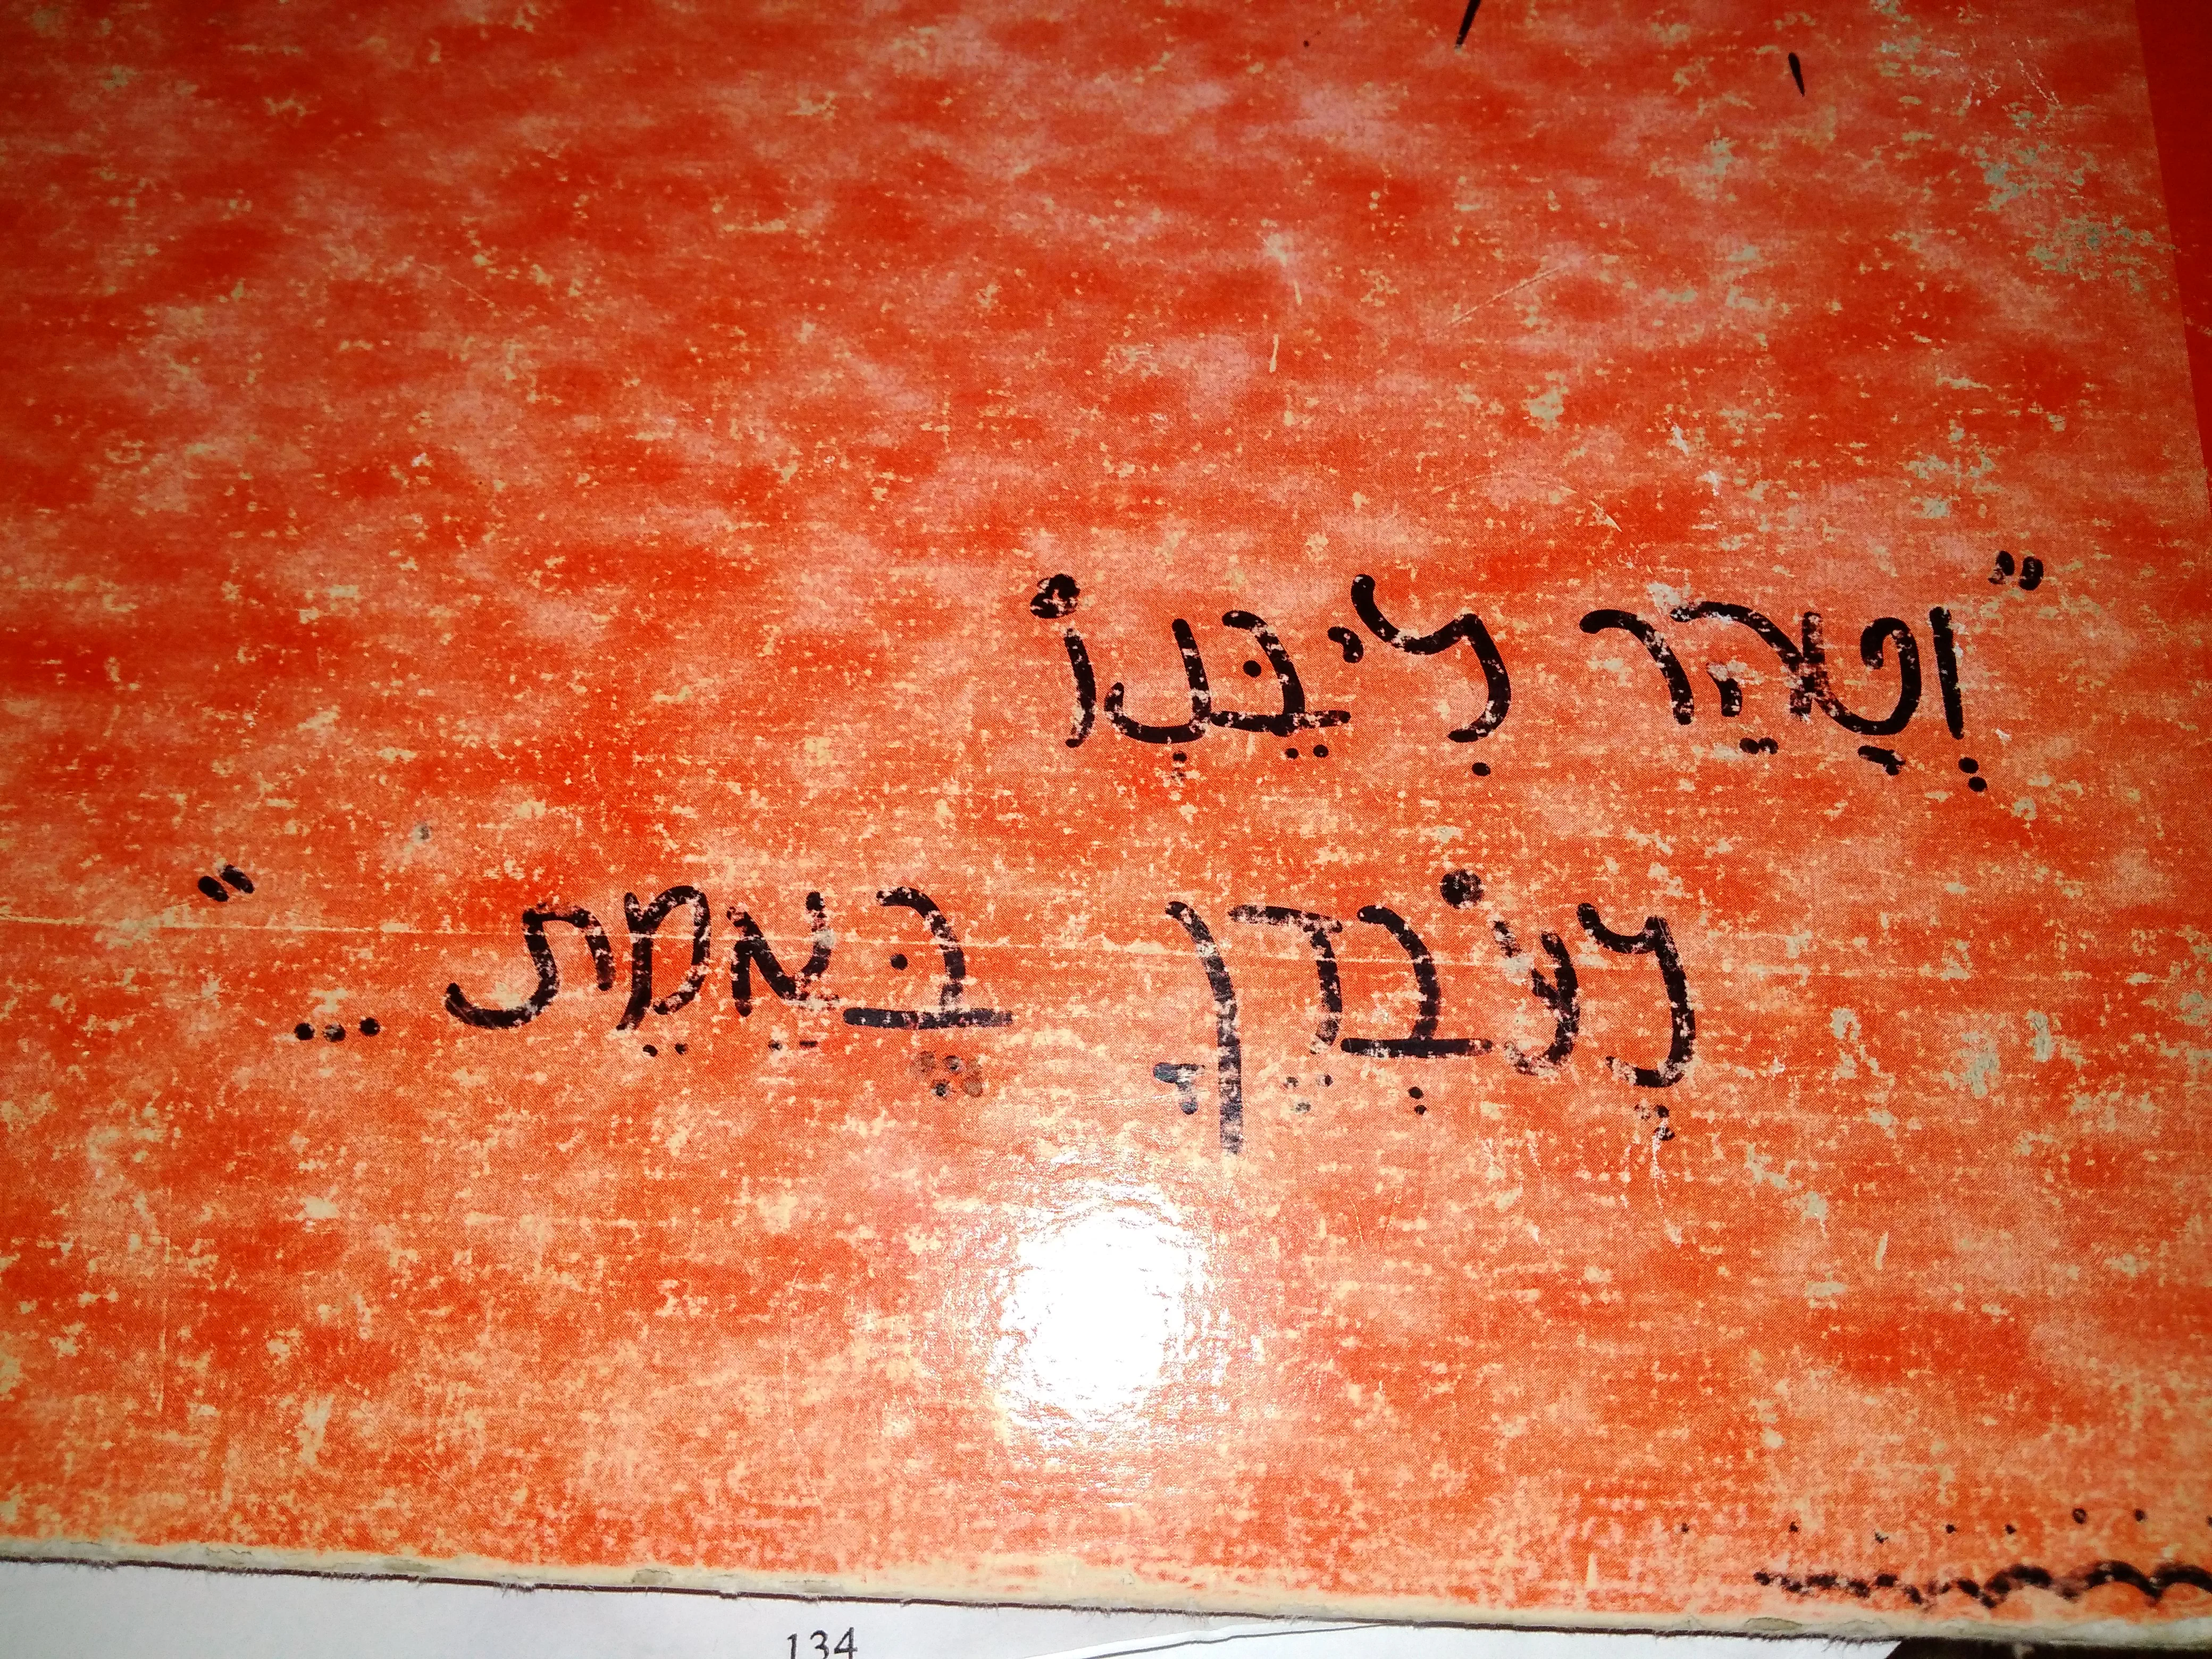 "וְטָהֵר לִיבֵּנְוֹ
לָעֹבְדֵךָ בֶּאַמֵת..."
134